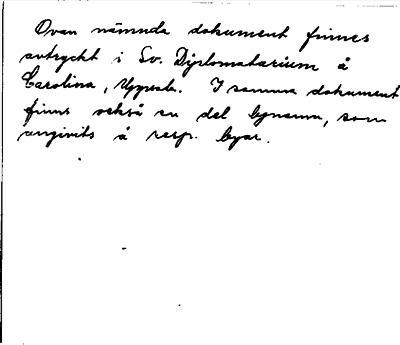 Ovan nämnda dokument finnes
avtryckt i Sv. Diplomatarium å
Carolina, Uppsala. I samma dokument
finns också en del bynamn, som
angivits å resp. byar.